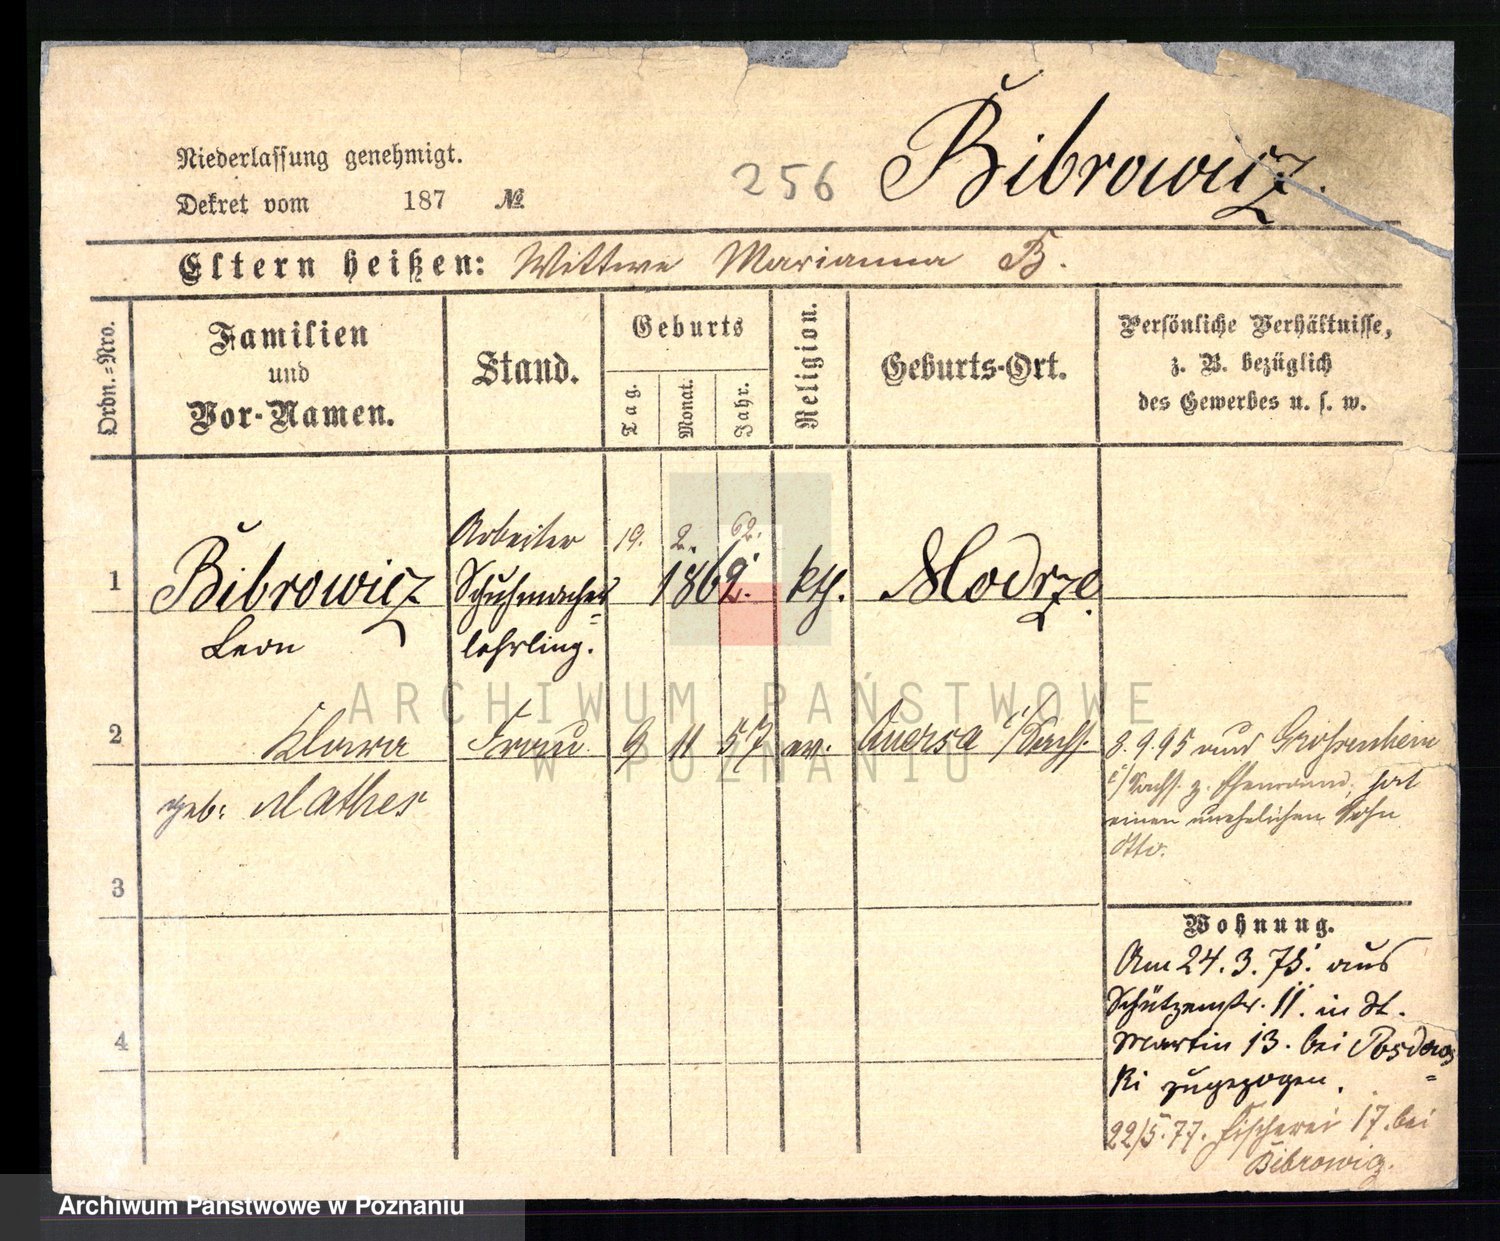 Niederlassung genehmigt.
Dekret vom 187 №
256
Bibrowicz.
Eltern heißen: Wittwe Marianna B.
Ordn.-Nro.
Familien
und
Vor-Namen.
Stand.
Geburts
Tag.
Monat.
Jahr.
Religion.
Geburts-Ort.
Persönliche Verhältnisse,
z. B. bezüglich
des Gewerbes u. s. w.
Arbeiter 19. 2. 62.
1 Bibrowicz Schuhmacher= 1862. kth. Modrze.
Leon lehrling.
2 Klara Frau 9 11 57 ev. i/Sachs. 8.9.95 Grossenhein
geb: Mather i/Sachs. z. Ehemann, hat
einen unehelichen Sohn
Otto.
3
Wohnung.
Am 24.3.75. aus
Schützenstr. 11. in St.
4 Martin 13. bei
ki zugezogen.
22/5.77. Fischerei 17. bei
Bibrowicz.
ARCHIWUM PAŃSTWOWE
W POZNANIU
Archiwum Państwowe w Poznaniu